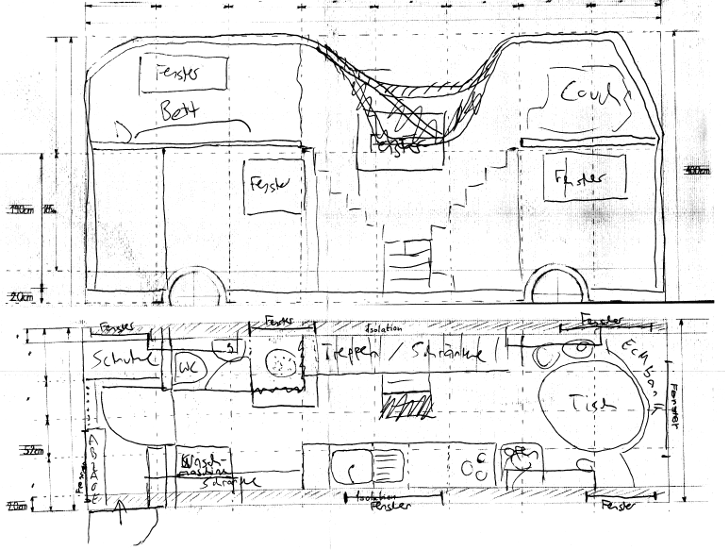 Fenster
Bett
Couch
Fenster
Fenster
Fenster
20cm
Fenster
Fenster
Isolation
Fenster
Schuhe
WC
Treppen / Schränke
Eckbank
Tisch
Fenster
Fenster
ABLAGE
Wasch-
maschine
Schränke
Ofen
Isolation
Fenster
Fenster